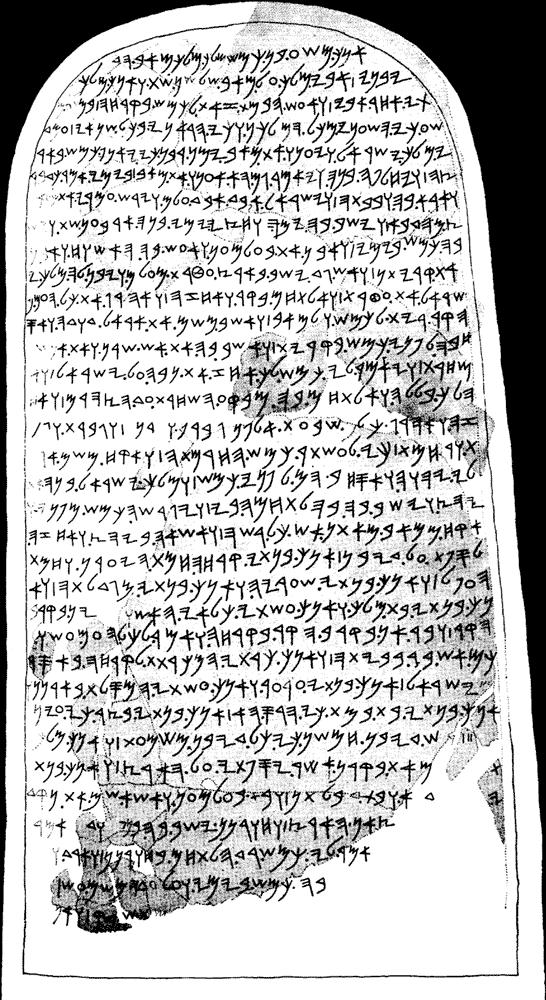 𐤀𐤍𐤊.𐤌𐤔𐤏.𐤁𐤍.𐤊𐤌𐤔.𐤌𐤋𐤊.𐤌𐤀𐤁.𐤄𐤃
𐤉𐤁𐤍𐤉|𐤀𐤁𐤉.𐤌𐤋𐤊.𐤏𐤋.𐤌𐤀𐤁.𐤔𐤋𐤔𐤍.𐤔𐤕.𐤅𐤀𐤍𐤊.𐤌𐤋𐤊
𐤕𐤉.𐤀𐤇𐤓.𐤀𐤁𐤉|𐤅𐤀𐤏𐤔.𐤄𐤁𐤌𐤕.𐤆𐤀𐤕.𐤋𐤊𐤌𐤔.𐤁𐤒𐤓𐤇𐤄
𐤔𐤏.𐤊𐤉.𐤄𐤔𐤏𐤍𐤉.𐤌𐤊𐤋.𐤄𐤌𐤋𐤊𐤍.𐤅𐤊𐤉.𐤄𐤓𐤀𐤍𐤉.𐤁𐤊𐤋.𐤔𐤍𐤀𐤉|𐤏𐤌𐤓
𐤉.𐤌𐤋𐤊.𐤉𐤔𐤓𐤀𐤋.𐤅𐤉𐤏𐤍𐤅.𐤀𐤕.𐤌𐤀𐤁.𐤉𐤌𐤍.𐤓𐤁𐤍.𐤊𐤉.𐤉𐤀𐤍𐤐.𐤊𐤌𐤔.𐤁𐤀𐤓
𐤑𐤄|𐤅𐤉𐤇𐤋𐤐𐤄.𐤁𐤍𐤄.𐤅𐤉𐤀𐤌𐤓.𐤂𐤌.𐤄𐤀.𐤀𐤏𐤍𐤅.𐤀𐤕.𐤌𐤀𐤁|𐤁𐤉𐤌𐤉.𐤀𐤌𐤓
𐤅𐤀𐤓𐤀.𐤁𐤄.𐤅𐤁𐤁𐤕𐤄|𐤅𐤉𐤔𐤓𐤀𐤋.𐤀𐤁𐤃.𐤀𐤁𐤃.𐤏𐤋𐤌.𐤅𐤉𐤓𐤔.𐤏𐤌𐤓𐤉.𐤀𐤕
𐤑.𐤌𐤄𐤃𐤁𐤀|𐤅𐤉𐤔𐤁.𐤁𐤄.𐤉𐤌𐤄.𐤅𐤇𐤑𐤉.𐤉𐤌𐤉.𐤁𐤍𐤄.𐤀𐤓𐤁𐤏𐤍.𐤔𐤕.𐤅
𐤁𐤄.𐤊𐤌𐤔.𐤁𐤉𐤌𐤉|𐤅𐤀𐤁𐤍.𐤀𐤕.𐤁𐤏𐤋𐤌𐤏𐤍.𐤅𐤀𐤏𐤔.𐤁𐤄.𐤄𐤀𐤔𐤅𐤇.𐤅𐤀
𐤀𐤕.𐤒𐤓𐤉𐤕𐤍|𐤅𐤀𐤔.𐤂𐤃.𐤉𐤔𐤁.𐤁𐤀𐤓𐤑.𐤏𐤈𐤓𐤕.𐤌𐤏𐤋𐤌.𐤅𐤉𐤁𐤍.𐤋𐤄.𐤌𐤋𐤊.𐤉
𐤔𐤓𐤀𐤋.𐤀𐤕.𐤏𐤈𐤓𐤕|𐤅𐤀𐤋𐤕𐤇𐤌.𐤁𐤒𐤓.𐤅𐤀𐤇𐤆𐤄|𐤅𐤀𐤄𐤓𐤂.𐤀𐤕.𐤊𐤋.𐤄𐤏𐤌
𐤄𐤒𐤓.𐤓𐤉𐤕.𐤋𐤊𐤌𐤔.𐤅𐤋𐤌𐤀𐤁|𐤅𐤀𐤔𐤁.𐤌𐤔𐤌.𐤀𐤕.𐤀𐤓𐤀𐤋.𐤃𐤅𐤃𐤄.𐤅𐤀𐤎
𐤇𐤁𐤄.𐤋𐤐𐤍𐤉.𐤊𐤌𐤔.𐤁𐤒𐤓𐤉𐤕|𐤅𐤀𐤔𐤁.𐤁𐤄.𐤀𐤕.𐤀𐤔.𐤔𐤓𐤍.𐤅𐤀𐤕.𐤀
𐤌𐤇𐤓𐤕|𐤅𐤉𐤀𐤌𐤓.𐤋𐤉.𐤊𐤌𐤔.𐤋𐤊.𐤀𐤇𐤆.𐤀𐤕.𐤍𐤁𐤄.𐤏𐤋.𐤉𐤔𐤓𐤀𐤋|𐤅𐤀
𐤄𐤋𐤊.𐤁𐤋𐤋𐤄.𐤅𐤀𐤋𐤕𐤇𐤌.𐤁𐤄.𐤌𐤁𐤒𐤏.𐤄𐤔𐤇𐤓𐤕.𐤏𐤃.𐤄𐤑𐤄𐤓𐤌|𐤅𐤀
𐤆𐤄.𐤅𐤀𐤄𐤓𐤂.𐤊𐤋.𐤔𐤁𐤏𐤕.𐤀𐤋𐤐𐤍.𐤂𐤁𐤓𐤍.𐤅𐤂𐤓𐤍|𐤅𐤂𐤁𐤓𐤕.𐤅𐤂𐤓
𐤕.𐤅𐤓𐤇𐤌𐤕|𐤊𐤉.𐤋𐤏𐤔𐤕𐤓.𐤊𐤌𐤔.𐤄𐤇𐤓𐤌𐤕𐤄|𐤅𐤀𐤒𐤇.𐤌𐤔𐤌.𐤀
𐤋𐤉.𐤉𐤄𐤅𐤄.𐤅𐤀𐤎𐤇𐤁.𐤄𐤌.𐤋𐤐𐤍𐤉.𐤊𐤌𐤔|𐤅𐤌𐤋𐤊.𐤉𐤔𐤓𐤀𐤋.𐤁𐤍𐤄.𐤀
𐤉𐤄𐤑.𐤅𐤉𐤔𐤁.𐤁𐤄.𐤁𐤄𐤋𐤕𐤇𐤌𐤄.𐤁𐤉|𐤅𐤉𐤂𐤓𐤔𐤄.𐤊𐤌𐤔.𐤌𐤐𐤍𐤉
𐤀𐤒𐤇.𐤌𐤌𐤀𐤁.𐤌𐤀𐤕𐤍.𐤀𐤔.𐤊𐤋.𐤓𐤔𐤄|𐤅𐤀𐤔𐤀𐤄.𐤁𐤉𐤄𐤑.𐤅𐤀𐤇𐤆𐤄
𐤋𐤎𐤐𐤕.𐤏𐤋.𐤃𐤉𐤁𐤍|𐤀𐤍𐤊.𐤁𐤍𐤕𐤉.𐤒𐤓𐤇𐤄.𐤇𐤌𐤕.𐤄𐤉𐤏𐤓𐤍.𐤅𐤇𐤌𐤕
𐤄𐤏𐤐𐤋|𐤅𐤀𐤍𐤊.𐤁𐤍𐤕𐤉.𐤔𐤏𐤓𐤉𐤄.𐤅𐤀𐤍𐤊.𐤁𐤍𐤕𐤉.𐤌𐤂𐤃𐤋𐤕𐤄|𐤅𐤀
𐤍𐤊.𐤁𐤍𐤕𐤉.𐤁𐤕.𐤌𐤋𐤊.𐤅𐤀𐤍𐤊.𐤏𐤔𐤕𐤉.𐤊𐤋𐤀𐤉.𐤄𐤀𐤔 𐤁𐤒𐤓𐤁
𐤄𐤒𐤓|𐤅𐤁𐤓.𐤀𐤍.𐤁𐤒𐤓𐤁.𐤄𐤒𐤓.𐤁𐤒𐤓𐤇𐤄.𐤅𐤀𐤌𐤓.𐤋𐤊𐤋.𐤄𐤏𐤌.𐤏𐤔𐤅
𐤊𐤌.𐤀𐤔.𐤁𐤓.𐤁𐤁𐤉𐤕𐤄|𐤅𐤀𐤍𐤊.𐤊𐤓𐤕𐤉.𐤄𐤌𐤊𐤓𐤕𐤕.𐤋𐤒𐤓𐤇𐤄.𐤁𐤀𐤎𐤓
𐤉𐤔𐤓𐤀𐤋|𐤀𐤍𐤊.𐤁𐤍𐤕𐤉.𐤏𐤓𐤏𐤓.𐤅𐤀𐤍𐤊.𐤏𐤔𐤕𐤉.𐤄𐤌𐤎𐤋𐤕.𐤁𐤀𐤓𐤍𐤍
𐤀𐤍𐤊.𐤁𐤍𐤕𐤉.𐤁𐤕.𐤁𐤌𐤕.𐤊𐤉.𐤄𐤓𐤎.𐤄𐤀|𐤀𐤍𐤊.𐤁𐤍𐤕𐤉.𐤁𐤑𐤓.𐤊𐤉.𐤏𐤉𐤍
𐤔.𐤃𐤉𐤁𐤍.𐤇𐤌𐤔𐤍.𐤊𐤉.𐤊𐤋.𐤃𐤉𐤁𐤍.𐤌𐤔𐤌𐤏𐤕|𐤅𐤀𐤍𐤊.𐤌𐤋
𐤌𐤀𐤕.𐤁𐤒𐤓𐤍.𐤀𐤔𐤓.𐤉𐤎𐤐𐤕𐤉.𐤏𐤋.𐤄𐤀𐤓𐤑|𐤅𐤀𐤍𐤊.𐤁𐤍𐤕
𐤅𐤁𐤕.𐤃𐤁𐤋𐤕𐤍|𐤅𐤁𐤕.𐤁𐤏𐤋𐤌𐤏𐤍.𐤅𐤀𐤔𐤀.𐤔𐤌.𐤀𐤕.𐤍
𐤑𐤀𐤍.𐤄𐤀𐤓𐤑|𐤅𐤇𐤅𐤓𐤍𐤍.𐤉𐤔𐤁.𐤁𐤄
𐤀𐤌𐤓.𐤋𐤉.𐤊𐤌𐤔.𐤓𐤃.𐤄𐤋𐤕𐤇𐤌.𐤁𐤇𐤅𐤓𐤍𐤍|𐤅𐤀𐤓𐤃
𐤁𐤄.𐤊𐤌𐤔.𐤁𐤉𐤌𐤉.𐤅𐤏𐤋
𐤔𐤕 |𐤅𐤀𐤍